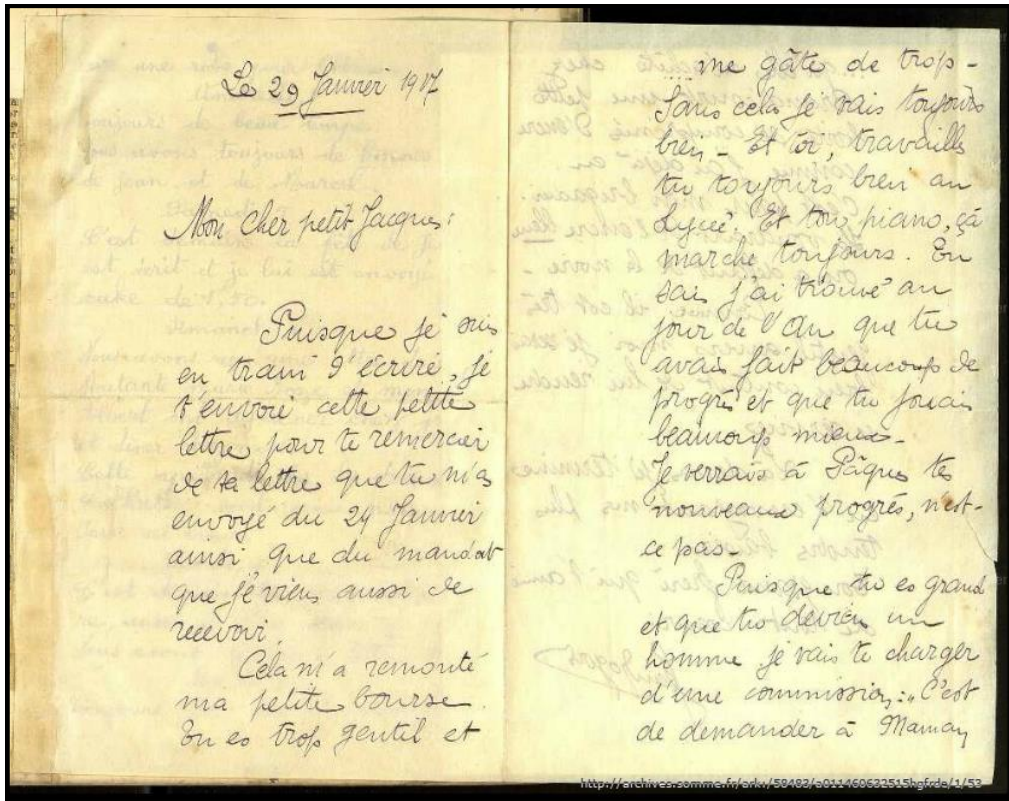 Le 29 Janvier 1917
Mon cher petit Jacques:
Puisque je suis
en train d'écrire, je
t'envoie cette petite
lettre pour te remercier
de ta lettre que tu m'as
envoyé du 24 Janvier
ainsi que du mandat
que je viens aussi de
recevoir.
Cela m'a remonté
ma petite bourse.
Tu es trop gentil et
... me gâte de trop -
Sans cela je vais toujours
bien - Et toi, travailles
tu toujours bien au
Lycée. Et ton piano, çà
marche toujours. Tu
sais j'ai trouvé au
jour de l'An que tu
avais fait beaucoup de
progrès et que tu jouais
beaucoup mieux -
Je verrais à Pâques tes
nouveaux progrès, n'est-
ce pas -
Puisque tu es grand
et que tu deviens un
homme je vais te charger
d'une commission: "C'est
de demander à Maman
http://archives.somme.fr/ark:/58483/a011460632515hgfrde/1/53